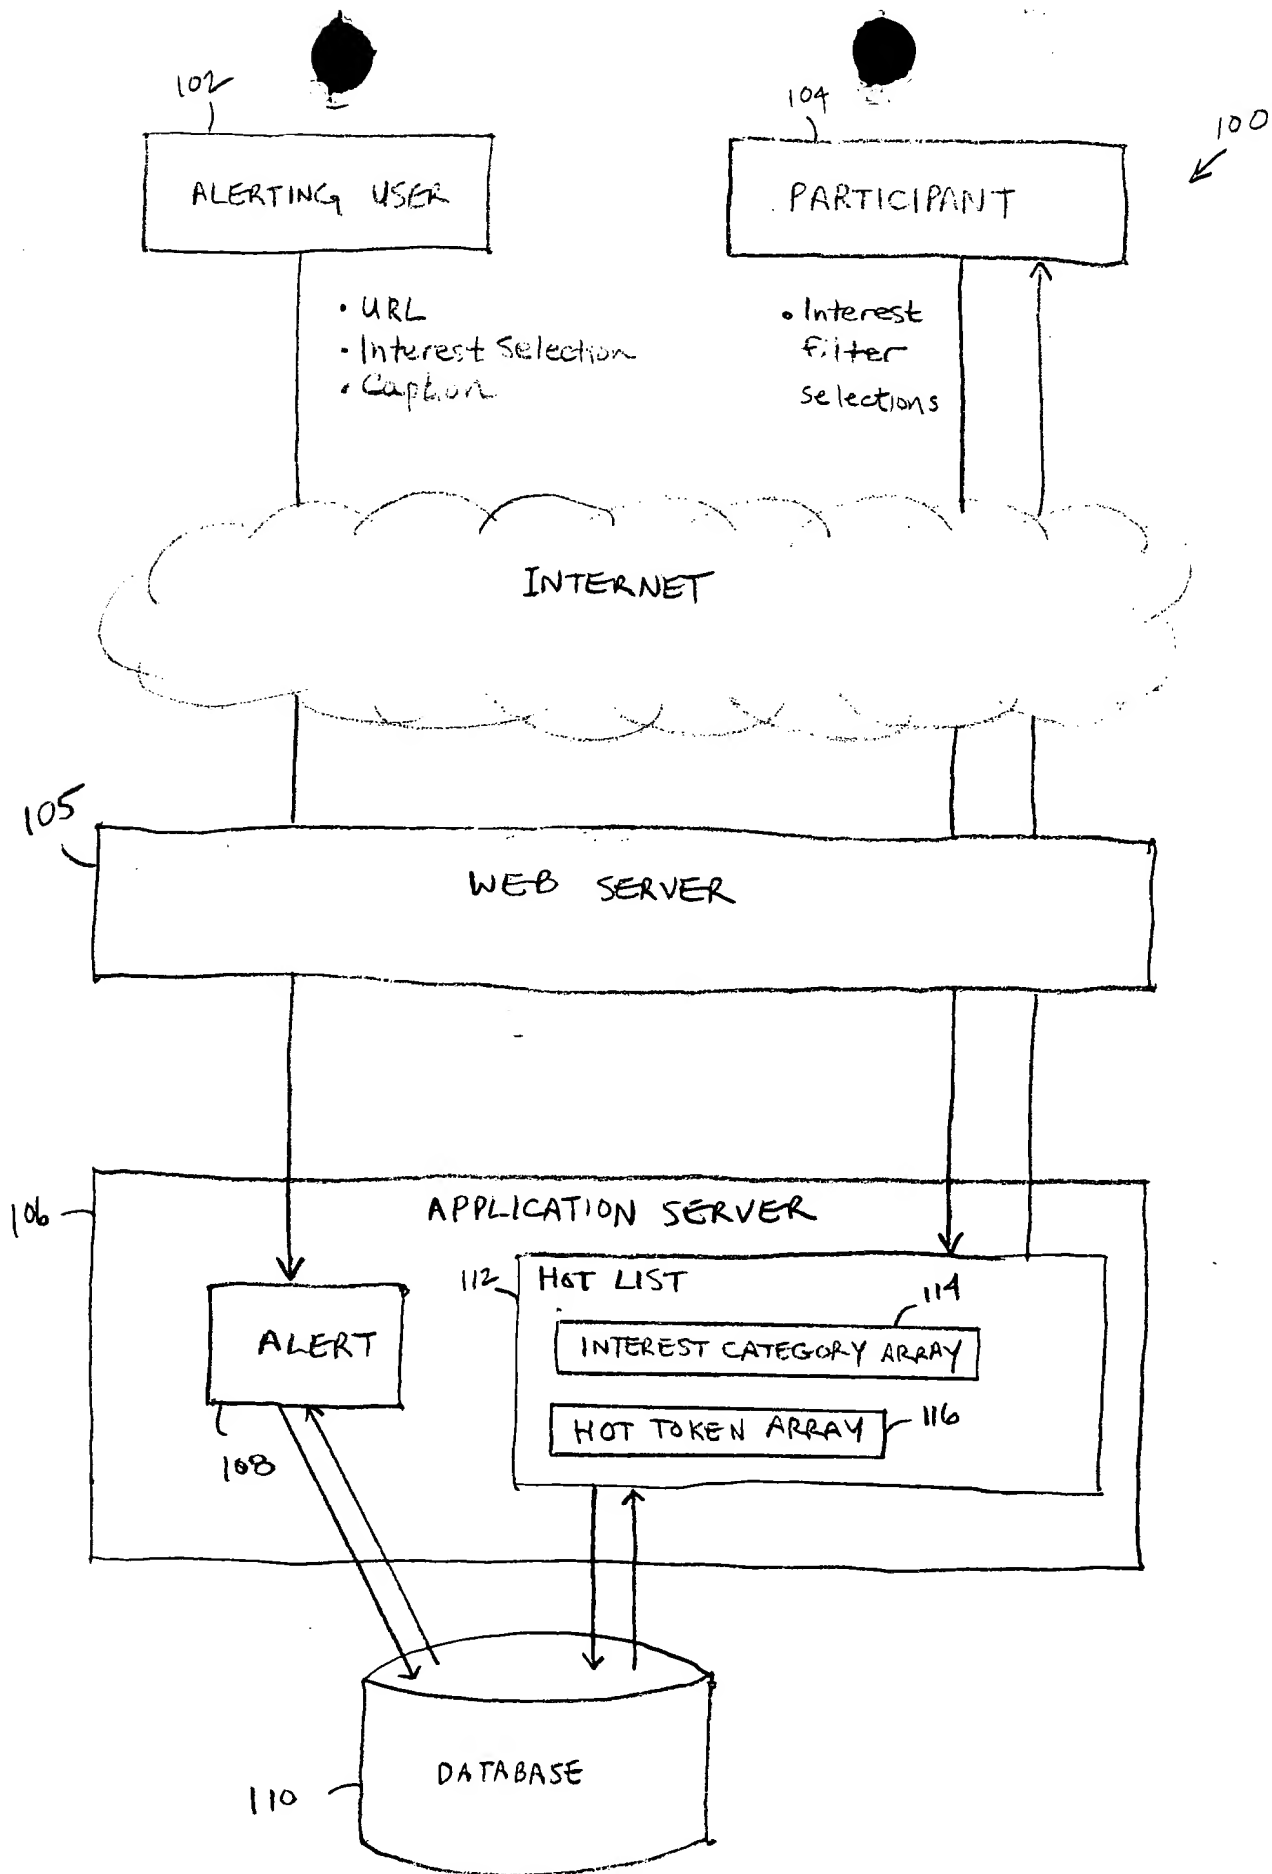 102
104
100
ALERTING USER
PARTICIPANT
• URL
• Interest Selection
• Caption
• Interest
filter
selections
INTERNET
105
WEB SERVER
106
APPLICATION SERVER
112
HOT LIST
114
ALERT
INTEREST CATEGORY ARRAY
HOT TOKEN ARRAY
116
108
DATABASE
110